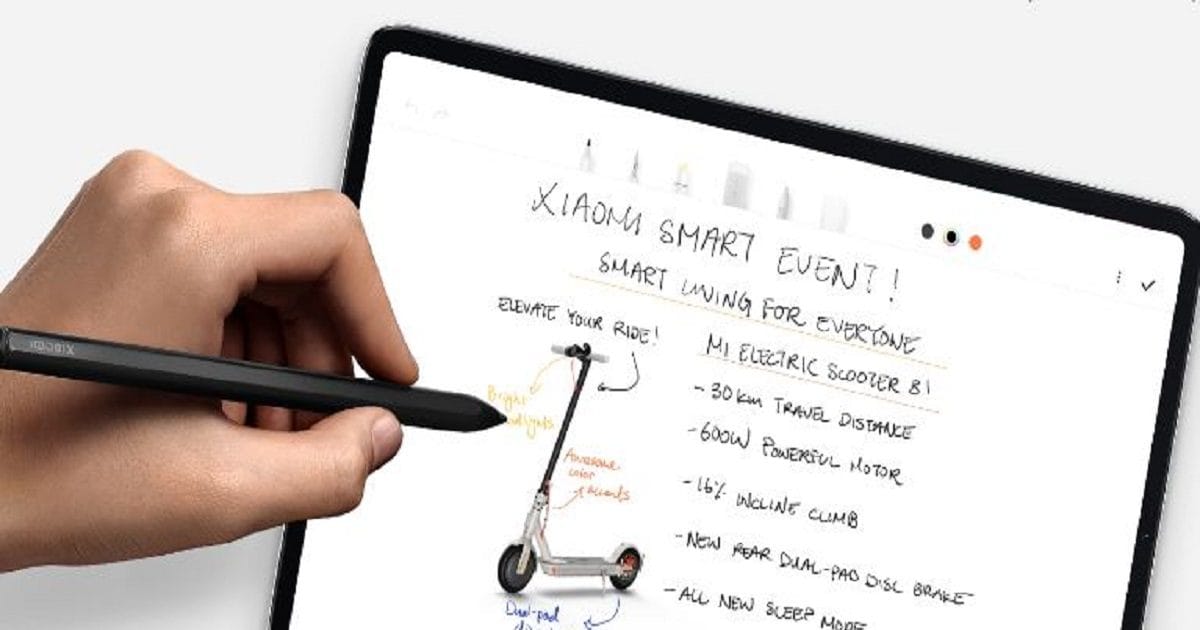 XIAOMI SMART EVENT!
SMART LIVING FOR EVERYONE
ELEVATE YOUR RIDE!
MI ELECTRIC SCOOTER
- 30 km TRAVEL DISTANCE
- 600W POWERFUL MOTOR
- 16% INCLINE CLIMB
- NEW REAR DUAL-PAD DISC BRAKE
- ALL NEW SLEEP MODE
Bright
Awesome
color
accents
Dual-pad
xiaomi